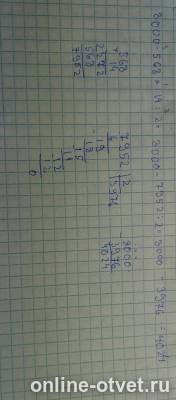 8000-568*14:2=8000-7952:2=8000-3976=4024
*568
14
2272
568
7952
7952 2
6 3976
19
18
15
14
12
12
0
8000
3976
4024
online-otvet.ru